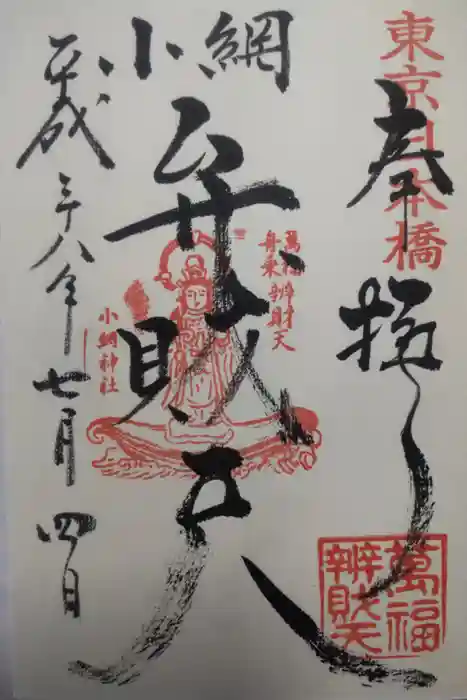 東京日本橋
奉拝
小網
弁財天
萬福
舟乗辨財天
小網神社
平成二十八年
七月四日
萬福
辨財天